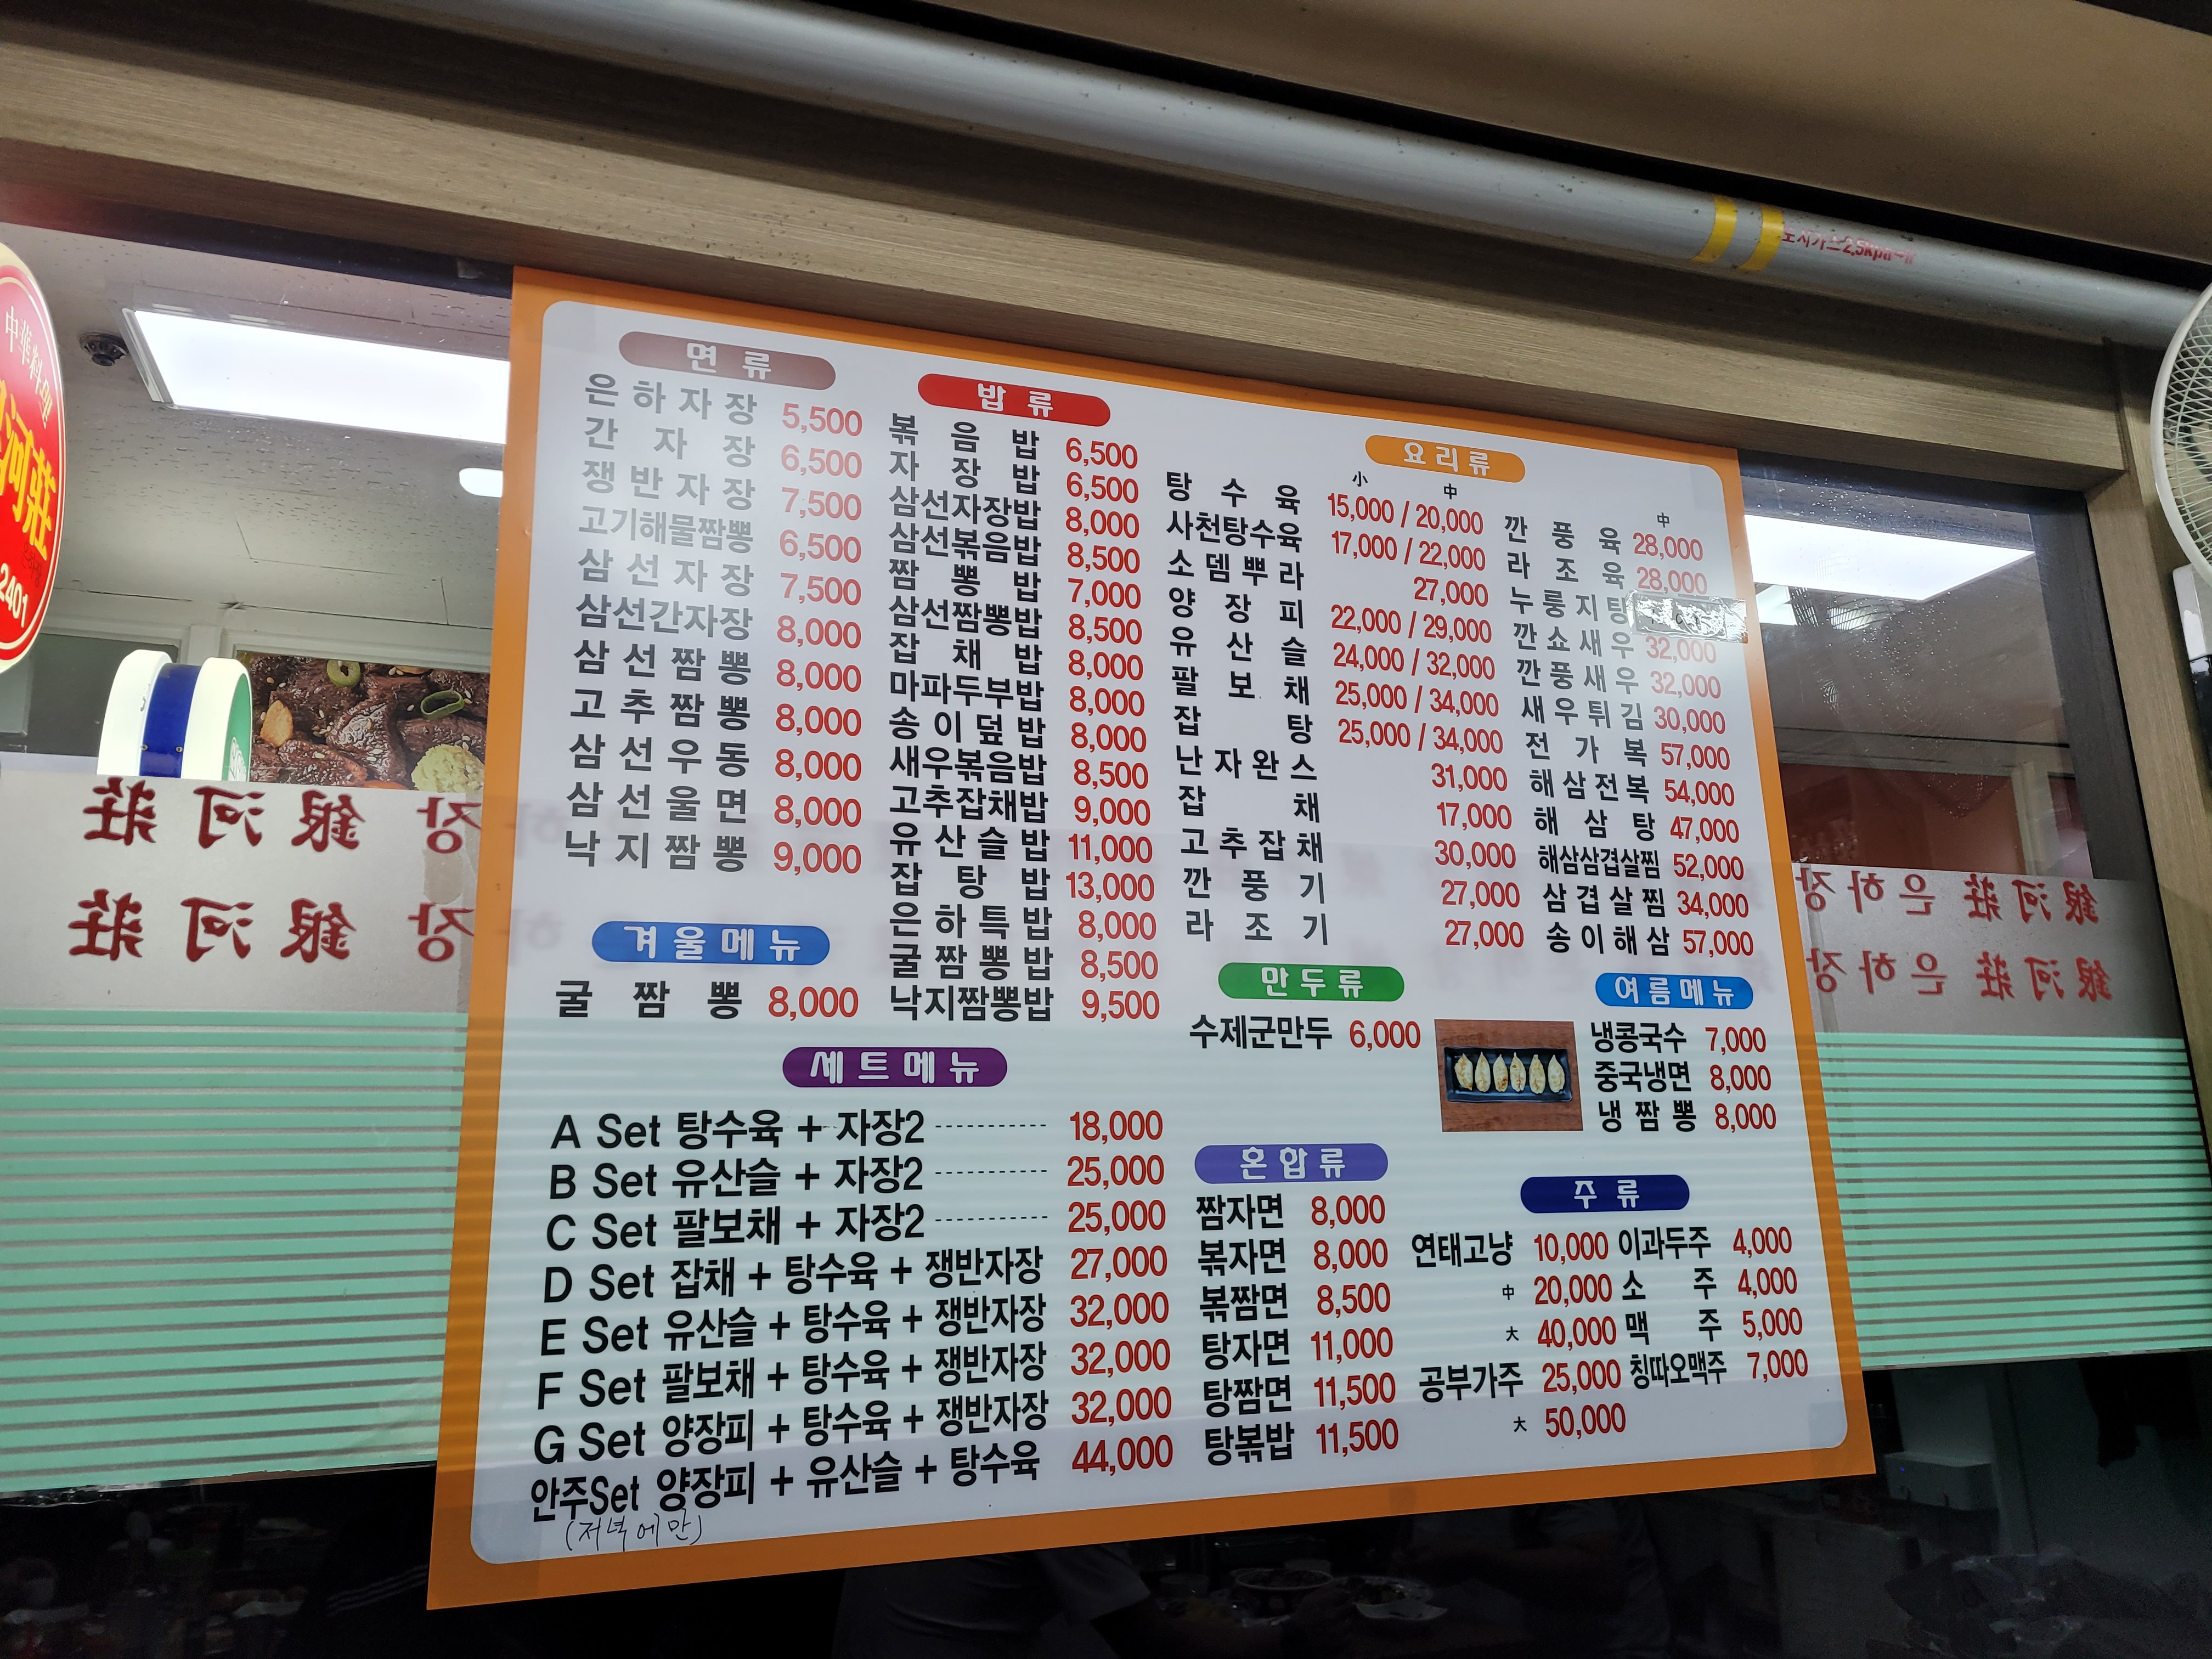 도시가스 2.5kpa
中華料理
河莊
2401
銀河莊 은하장
銀河莊 은하장
면류
은하자장 5,500
간자장 6,500
쟁반자장 7,500
고기해물짬뽕 6,500
삼선자장 7,500
삼선간자장 8,000
삼선짬뽕 8,000
고추짬뽕 8,000
삼선우동 8,000
삼선울면 8,000
낙지짬뽕 9,000
겨울메뉴
굴짬뽕 8,000
밥류
볶음밥 6,500
자장밥 6,500
삼선자장밥 8,000
삼선볶음밥 8,500
짬뽕밥 7,000
삼선짬뽕밥 8,500
잡채밥 8,000
마파두부밥 8,000
송이덮밥 8,000
새우볶음밥 8,500
고추잡채밥 9,000
유산슬밥 11,000
잡탕밥 13,000
은하특밥 8,000
굴짬뽕밥 8,500
낙지짬뽕밥 9,500
요리류
小 中
탕수육 15,000 / 20,000
사천탕수육 17,000 / 22,000
소뎀뿌라 27,000
양장피 22,000 / 29,000
유산슬 24,000 / 32,000
팔보채 25,000 / 34,000
잡탕 25,000 / 34,000
난자완스 31,000
잡채 17,000
고추잡채 30,000
깐풍기 27,000
라조기 27,000
中
깐풍육 28,000
라조육 28,000
누룽지탕
깐쇼새우 32,000
깐풍새우 32,000
새우튀김 30,000
전가복 57,000
해삼전복 54,000
해삼탕 47,000
해삼삼겹살찜 52,000
삼겹살찜 34,000
송이해삼 57,000
만두류
수제군만두 6,000
여름메뉴
냉콩국수 7,000
중국냉면 8,000
냉짬뽕 8,000
세트메뉴
A Set 탕수육 + 자장2 ---------- 18,000
B Set 유산슬 + 자장2 ---------- 25,000
C Set 팔보채 + 자장2 ---------- 25,000
D Set 잡채 + 탕수육 + 쟁반자장 27,000
E Set 유산슬 + 탕수육 + 쟁반자장 32,000
F Set 팔보채 + 탕수육 + 쟁반자장 32,000
G Set 양장피 + 탕수육 + 쟁반자장 32,000
안주Set 양장피 + 유산슬 + 탕수육 44,000
(저녁에만)
혼합류
짬자면 8,000
볶자면 8,000
볶짬면 8,500
탕자면 11,000
탕짬면 11,500
탕볶밥 11,500
주류
연태고냥 10,000 이과두주 4,000
中 20,000 소주 4,000
大 40,000 맥주 5,000
공부가주 25,000 칭따오맥주 7,000
大 50,000